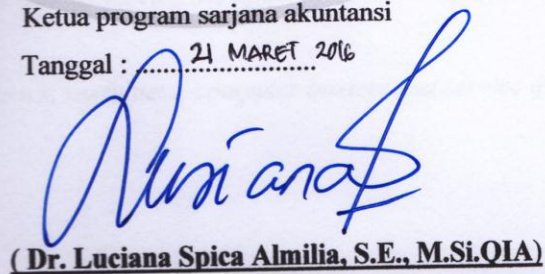 Ketua program sarjana akuntansi
Tanggal : 21 MARET 2016
Lusiana S
( Dr. Luciana Spica Almilia, S.E., M.Si.QIA)